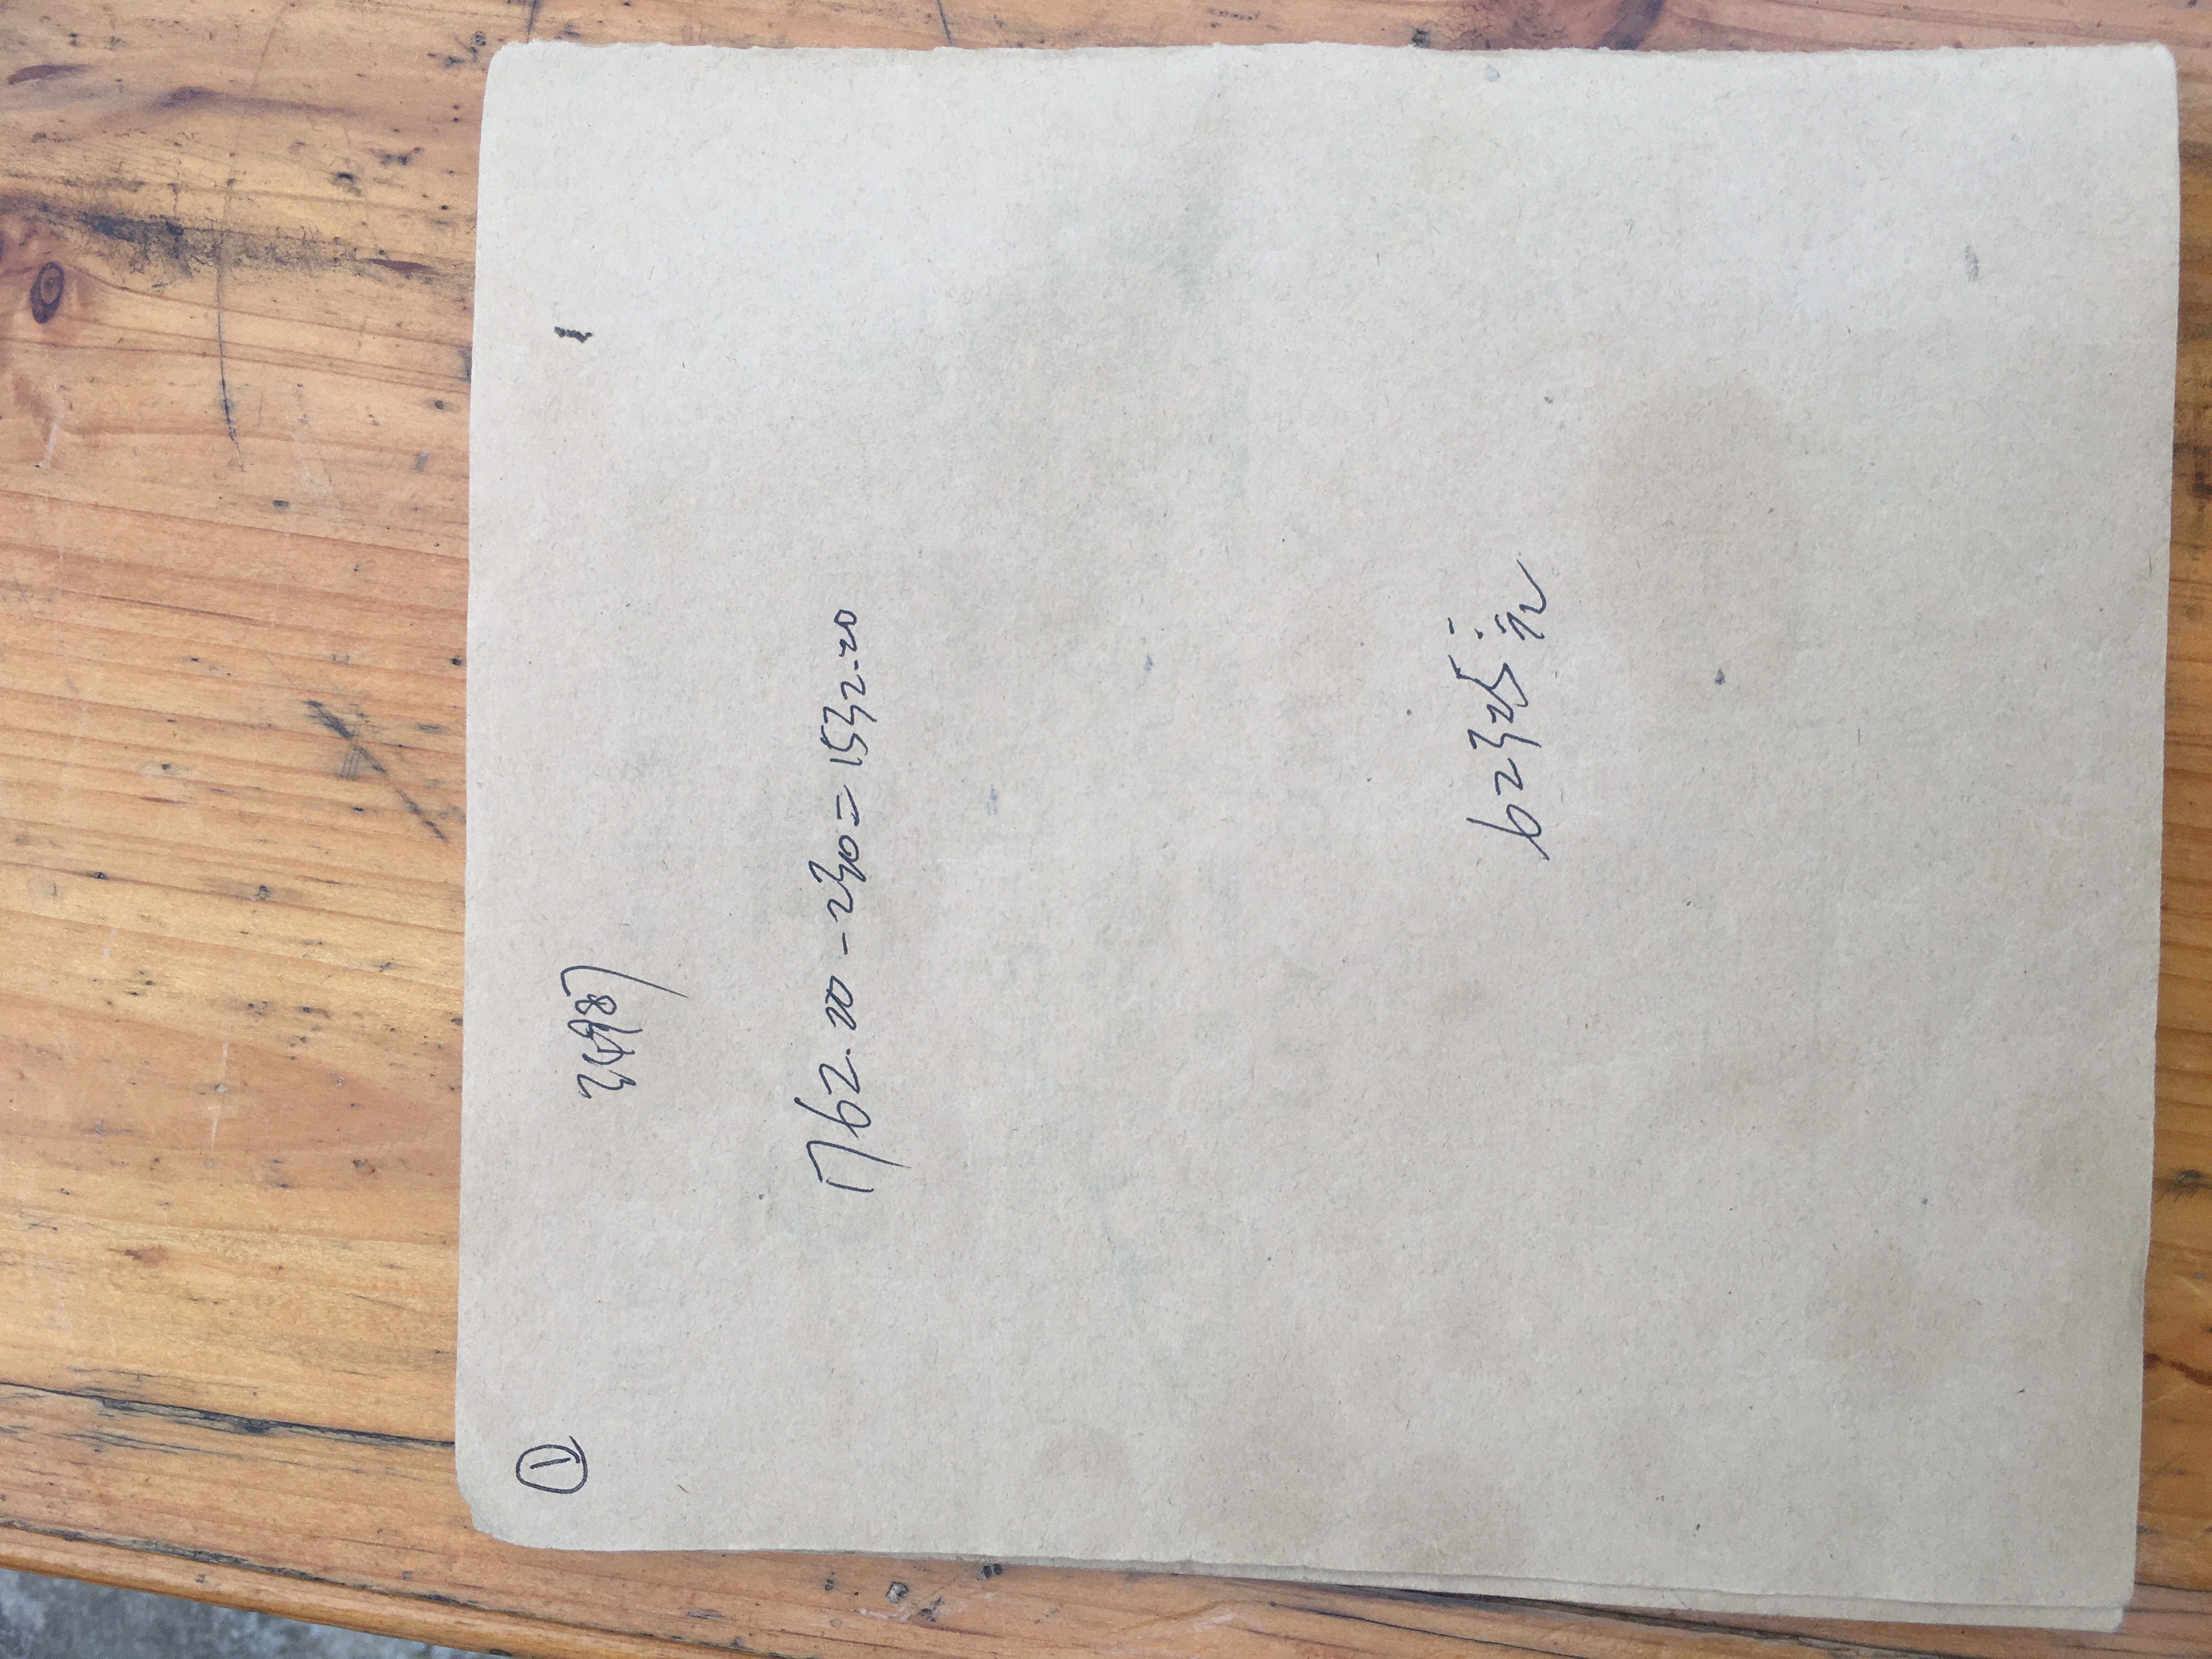 ① 34987
1762.20-230=1532.20
62325元